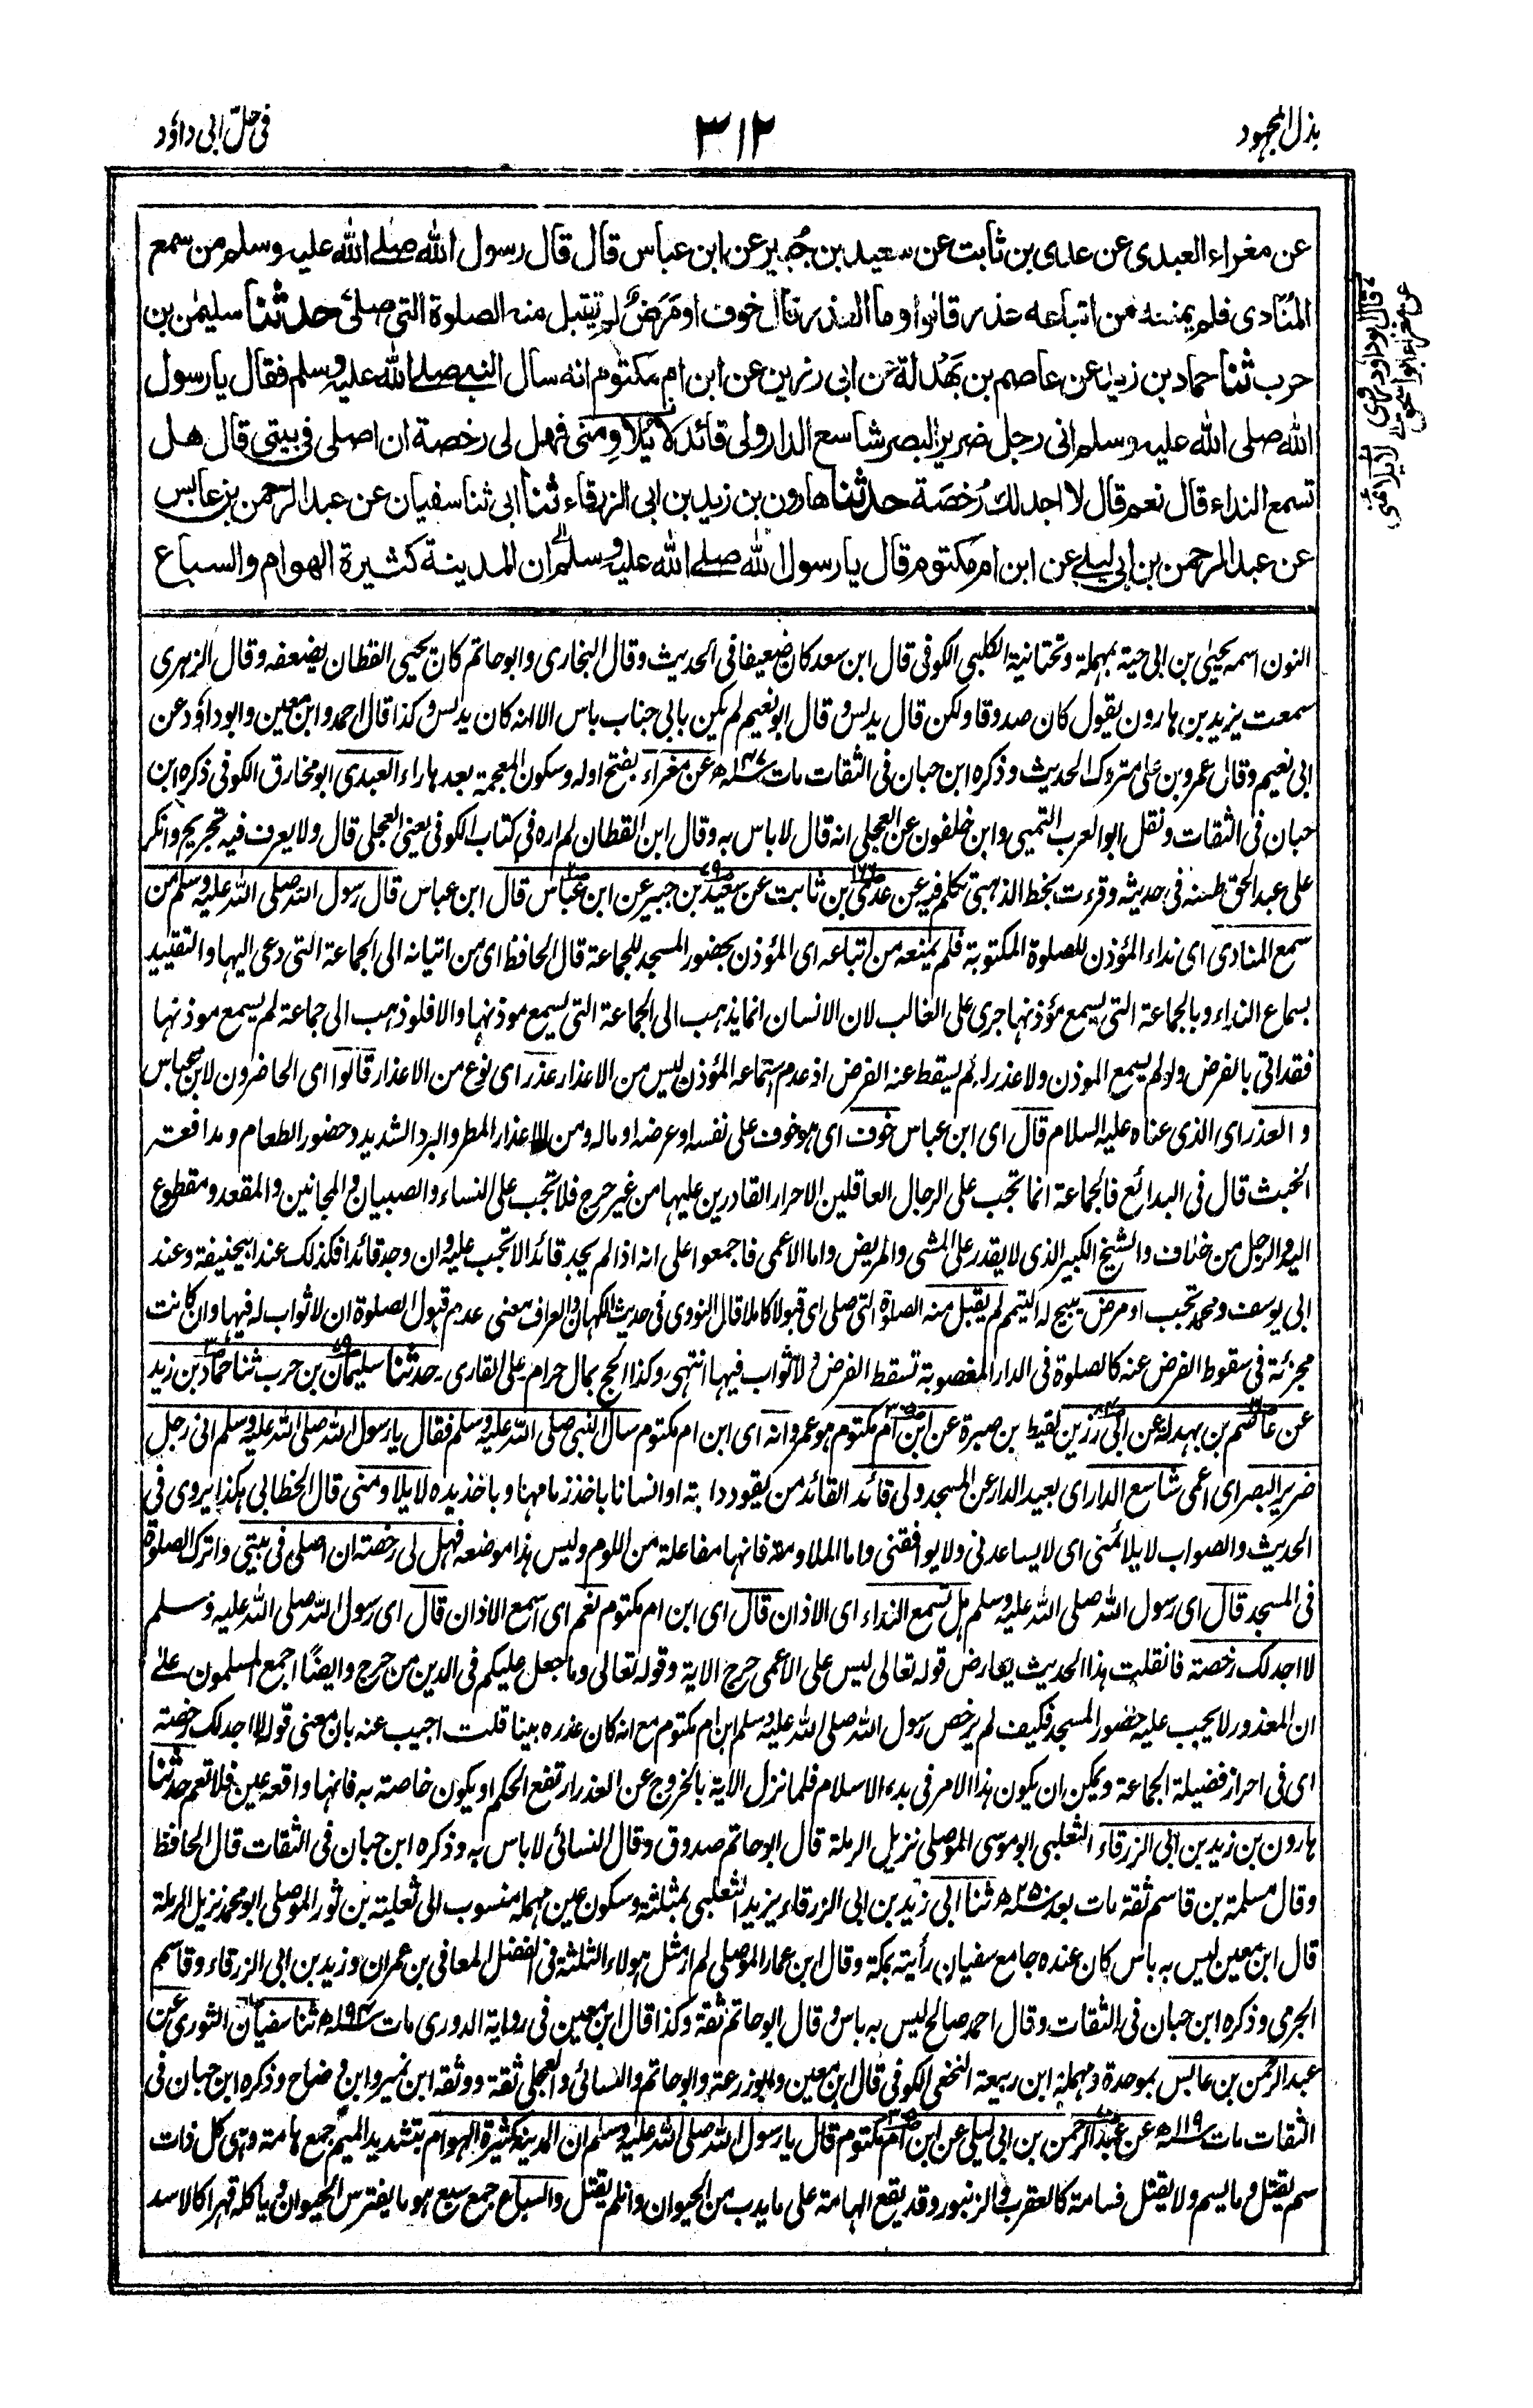 بذل المجهود
٣١٢
فى حل ابى داؤد
عن مغراء العبدى عن عدى بن ثابت عن سعيد بن جُبير عن ابن عباس قال قال رسول الله صلے الله عليه وسلم من سمع
المُنَادى فلم يمنعه من اتباعه عذر قالوا وما العذر قال خوف او مَرَضٌ لم تقبل منه الصلوة التى صلىٰ حدثنا سليمٰن بن
حرب ثنا حماد بن زيد عن عاصم بن بَهْدلة عن ابى رزين عن ابن ام مكتوم انه سأل النبى صلے الله عليه وسلم فقال يارسول
الله صلى الله عليه وسلم انى رجل ضرير البصر شاسع الدار ولى قائد لا يُلاوِمنى فهل لى رخصة ان اصلى فى بيتى قال هل
تسمع النداء قال نعم قال لا اجد لك رُخصَة حدثنا هارون بن زيد بن ابى الزرقاء ثنا ابى ثنا سفيان عن عبد الرحمن بن عابس
عن عبد الرحمن بن ابى ليلے عن ابن ام مكتوم قال يارسول الله صلے الله عليه وسلم ان المدينة كثيرة الهوام والسباع
النون اسمه يحيىٰ بن ابى حية بمهملة وتحتانية الكلبى الكوفى قال ابن سعد كان ضعيفا فى الحديث وقال البخارى وابو حاتم كان يحيى القطان يضعفه وقال الزهرى
سمعت يزيد بن هارون يقول كان صدوقا ولكن قال يدلس وقال ابو نعيم لم يكن بابى جناب باس الا انه كان يدلس وكذا قال احمد وابن معين وابو داؤد عن
ابى نعيم وقال عمرو بن على متروك الحديث وذكره ابن حبان فى الثقات مات سنه ١٤٧ه عن مغراء بفتح اوله وسكون المعجمة بعدها راء العبدى ابو مخارق الكوفى ذكره ابن
حبان فى الثقات ونقل ابو العرب التميمى وابن خلفون عن العجلى انه قال لا باس به وقال ابن القطان لم اره فى كتاب الكوفى يعنى العجلى قال ولا يعرف فيه تجريح وانكر
على عبد الحق طعنه فى حديثه وقرءت بخط الذهبى تكلم فيه عن عدى بن ثابت عن سعيد بن جبير عن ابن عباس قال ابن عباس قال رسول الله صلى الله عليه وسلم من
سمع المنادى اى نداء المؤذن للصلوة المكتوبة فلم يمنعه من اتباعه اى المؤذن بحضور المسجد للجماعة قال الحافظ اى من اتيانه الى الجماعة التى دعى اليها والتقييد
بسماع النداء وبالجماعة التى يسمع مؤذنها جرى على الغالب لان الانسان انما يذهب الى الجماعة التى يسمع موذنها والا فلو ذهب الى جماعة لم يسمع موذنها
فقد اتى بالفرض ولو لم يسمع الموذن ولا عذر له لم يسقط عنه الفرض اذ عدم استماعه المؤذن ليس من الاعذار عذر اى نوع من الاعذار قالوا اى الحاضرون لابن عباس
و العذر اى الذى عناه عليه السلام قال اى ابن عباس خوف اى هو خوف على نفسه او عرضه او ماله ومن الاعذار المطر والبرد الشديد وحضور الطعام ومدافعة
الخبث قال فى البدائع فالجماعة انما تجب على الرجال العاقلين الاحرار القادرين عليها من غير حرج فلا تجب على النساء والصبيان والمجانين والمقعد ومقطوع
اليد والرجل من خلاف والشيخ الكبير الذى لا يقدر على المشى والمريض واما الاعمى فاجمعوا على انه اذا لم يجد قائدا لا تجب عليه وان وجد قائدا فكذلك عند ابيحنيفة وعند
ابى يوسف ومحمد تجب او مرض يبيح له التيمم لم يقبل منه الصلاة التى صلى اى قبولا كاملا قال النووى فى حديث الكهان والعراف معنى عدم قبول الصلوة ان لا ثواب له فيها وان كانت
مجزئة فى سقوط الفرض عنه كالصلوة فى الدار المغصوبة تسقط الفرض ولا ثواب فيها انتهى وكذا الحج بمال حرام على القارى۔ حدثنا سليمان بن حرب ثنا حماد بن زيد
عن عاصم بن بهدلة عن ابى رزين لقيط بن صبرة عن ابن ام مكتوم هو عمرو انه اى ابن ام مكتوم سأل النبى صلى الله عليه وسلم فقال يارسول الله صلى الله عليه وسلم انى رجل
ضرير البصر اى اعمى شاسع الدار اى بعيد الدار عن المسجد ولى قائد القائد من يقود دابته او انسانا باخذ زمامها او باخذ يده لا يلاومنى قال الخطابى هكذا يروى فى
الحديث والصواب لا يلائمنى اى لا يساعدنى ولا يوافقنى واما الملاومة فانها مفاعلة من اللوم وليس هذا موضعه فهل لى رخصة ان اصلى فى بيتى واترك الصلوة
فى المسجد قال اى رسول الله صلى الله عليه وسلم هل تسمع النداء اى الاذان قال اى ابن ام مكتوم نعم اى اسمع الاذان قال اى رسول الله صلى الله عليه وسلم
لا اجد لك رخصة فان قلت هذا الحديث يعارض قوله تعالى ليس على الاعمى حرج الاية وقوله تعالى وما جعل عليكم فى الدين من حرج وايضًا اجمع المسلمون علے
ان المعذور لا يجب عليه حضور المسجد فكيف لم يرخص رسول الله صلى الله عليه وسلم ابن ام مكتوم مع انه كان عذره بينا قلت اجيب عنه بان معنى قوله لا اجد لك رخصة
اى فى احراز فضيلة الجماعة ويمكن ان يكون هذا الامر فى بدء الاسلام فلما نزل الاية بالخروج عن العذر ارتفع الحكم او يكون خاصة به فانها واقعة عين فلا تعم حدثنا
هارون بن زيد بن ابى الزرقاء الثعلبى ابو موسى الموصلى نزيل الرملة قال ابو حاتم صدوق وقال النسائى لا باس به وذكره ابن حبان فى الثقات قال الحافظ
وقال مسلمة بن قاسم ثقة مات بعد سنه ٢٥٠ه ثنا ابى زيد بن ابى الزرقاء يزيد الثعلبى بمثلثة وسكون عين مهملة منسوب الى ثعلبة بن ثور الموصلى ابو محمد نزيل الرملة
قال ابن معين ليس به باس كان عنده جامع سفيان رأيته بمكة وقال ابن عمار الموصلى لم ار مثل هولاء الثلثة فى الفضل المعافى بن عمران وزيد بن ابى الزرقاء وقاسم
الجرمى وذكره ابن حبان فى الثقات وقال احمد صالح ليس به باس وقال ابو حاتم ثقة وكذا قال ابن معين فى رواية الدورى مات سنه ١٩٤ه ثنا سفيان الثورى عن
عبد الرحمن بن عابس بموحدة ومهملة ابن ربيعة النخعى الكوفى قال ابن معين وابو زرعة وابو حاتم والنسائى والعجلى ثقة ووثقه ابن نمير وابن وضاح وذكره ابن حبان فى
الثقات مات سنه ١١٩ه عن عبد الرحمن بن ابى ليلى عن ابن ام مكتوم قال يارسول الله صلى الله عليه وسلم ان المدينة كثيرة الهوام بتشديد الميم جمع هامة وهى كل ذات
سم يقتل وما يسم ولا يقتل فسامة كالعقرب والزنبور وقد يقع الهامة على ما يدب من الحيوان وان لم يقتل والسباع جمع سبع هو ما يفترس الحيوان وياكله قهرا كالاسد
قال ابو داؤد روى
عن مغراء ابو اسحق
لا يلائمنى